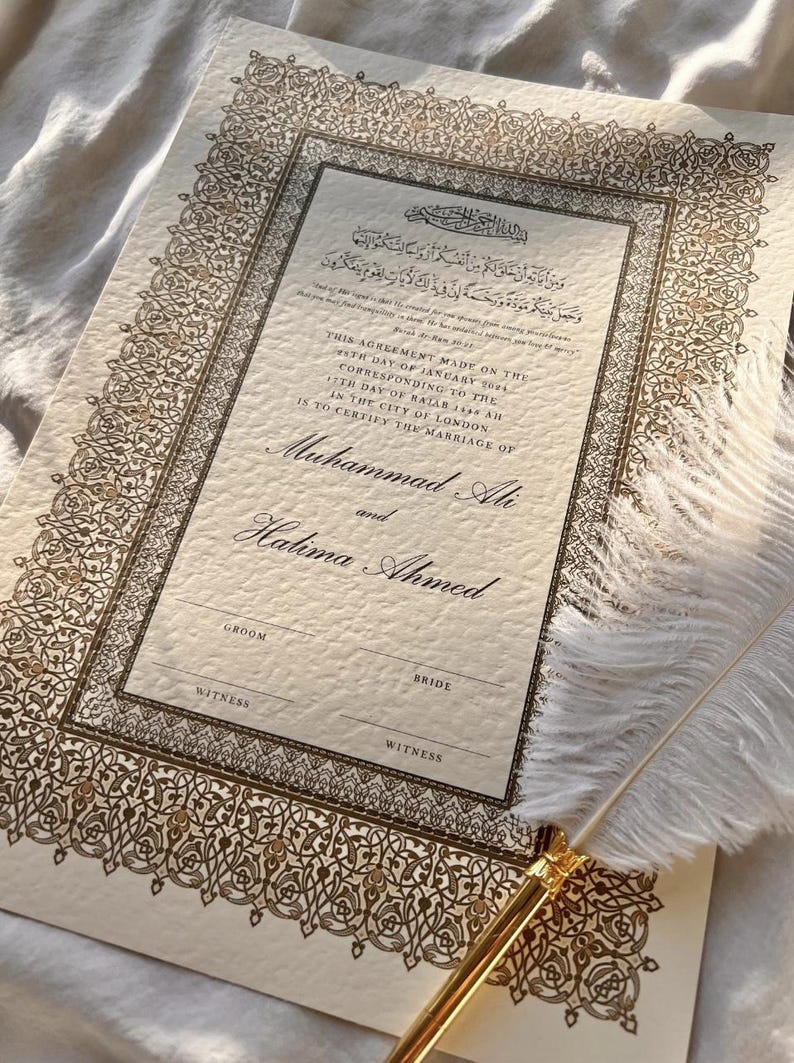 بسم الله الرحمن الرحيم
وَمِنْ آيَاتِهِ أَنْ خَلَقَ لَكُم مِّنْ أَنفُسِكُمْ أَزْوَاجًا لِّتَسْكُنُوا إِلَيْهَا
وَجَعَلَ بَيْنَكُم مَّوَدَّةً وَرَحْمَةً إِنَّ فِي ذَٰلِكَ لَآيَاتٍ لِّقَوْمٍ يَتَفَكَّرُونَ
"And of His signs is that He created for you spouses from among yourselves so
that you may find tranquillity in them. He has ordained between you love & mercy"
Surah Ar-Rum 30:21
THIS AGREEMENT MADE ON THE
28TH DAY OF JANUARY 2024
CORRESPONDING TO THE
17TH DAY OF RAJAB 1445 AH
IN THE CITY OF LONDON
IS TO CERTIFY THE MARRIAGE OF
Muhammad Ali
and
Halima Ahmed
GROOM
BRIDE
WITNESS
WITNESS